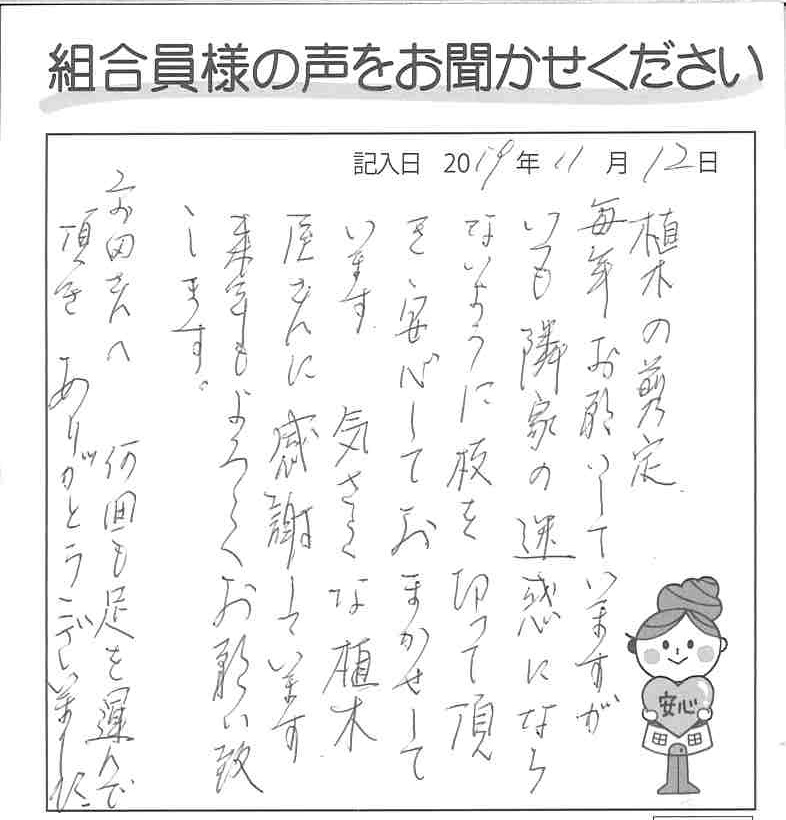 組合員様の声をお聞かせください
記入日 2019年11月12日
植木の剪定
毎年お願いしていますが
いつも隣家の迷惑になら
ないように枝を切って頂
き、安心しておまかせして
います 気さくな植木
屋さんに感謝しています
来年もよろしくお願い致
します。
田さんへ 何回も足を運んで
頂き ありがとうございました
安心